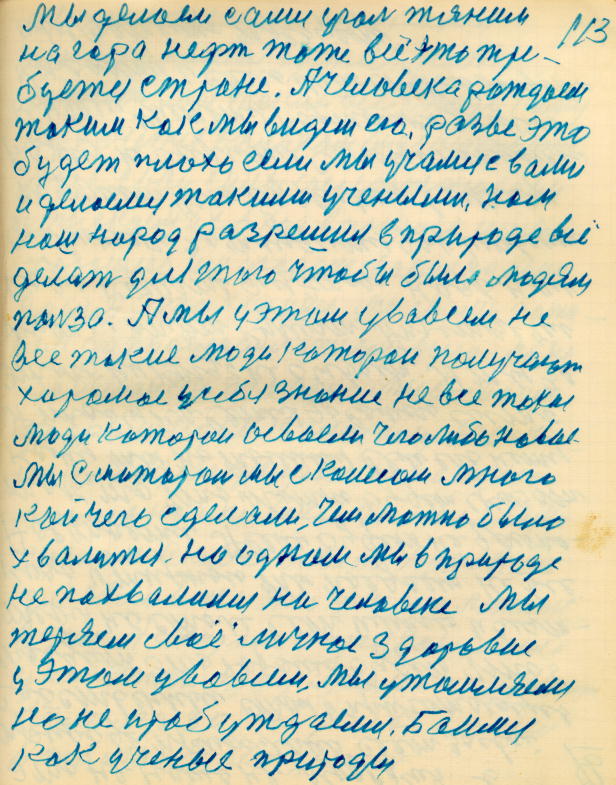 113
Мы делаем сами угол тяним
на гора нефт тоже всё это тре-
буется стране. А человека рождаем
таким как мы видем его, разве это
будет плохо если мы учамся с вами
и делаемся такими учеными, нам
наш народ разрешил в природе всё
делат для этого чтобы было людям
полза. А мы у этом увовсем не
все такие люди которои получают
харошое у себя знание не все такие
люди которои освоели чего либо новое
мы с мотором мы с колесом много
кой чего сделали, чем можно было
хвалится. но одном мы в природе
не похвалимся на человеке мы
теряем своё личное здоровие
у этом увовсем, мы утомляемся
но не пробуждаемся. Боимся
как ученые природы